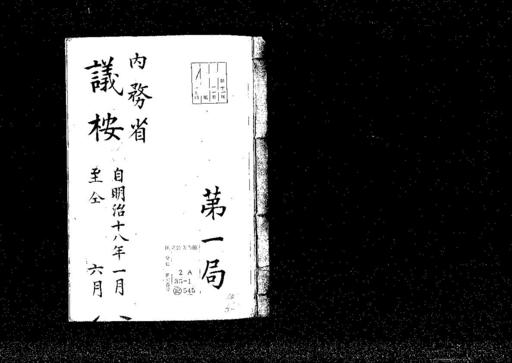 第一局
内務省
議桉
自明治十八年一月
至仝 六月
2 A
35-1
545